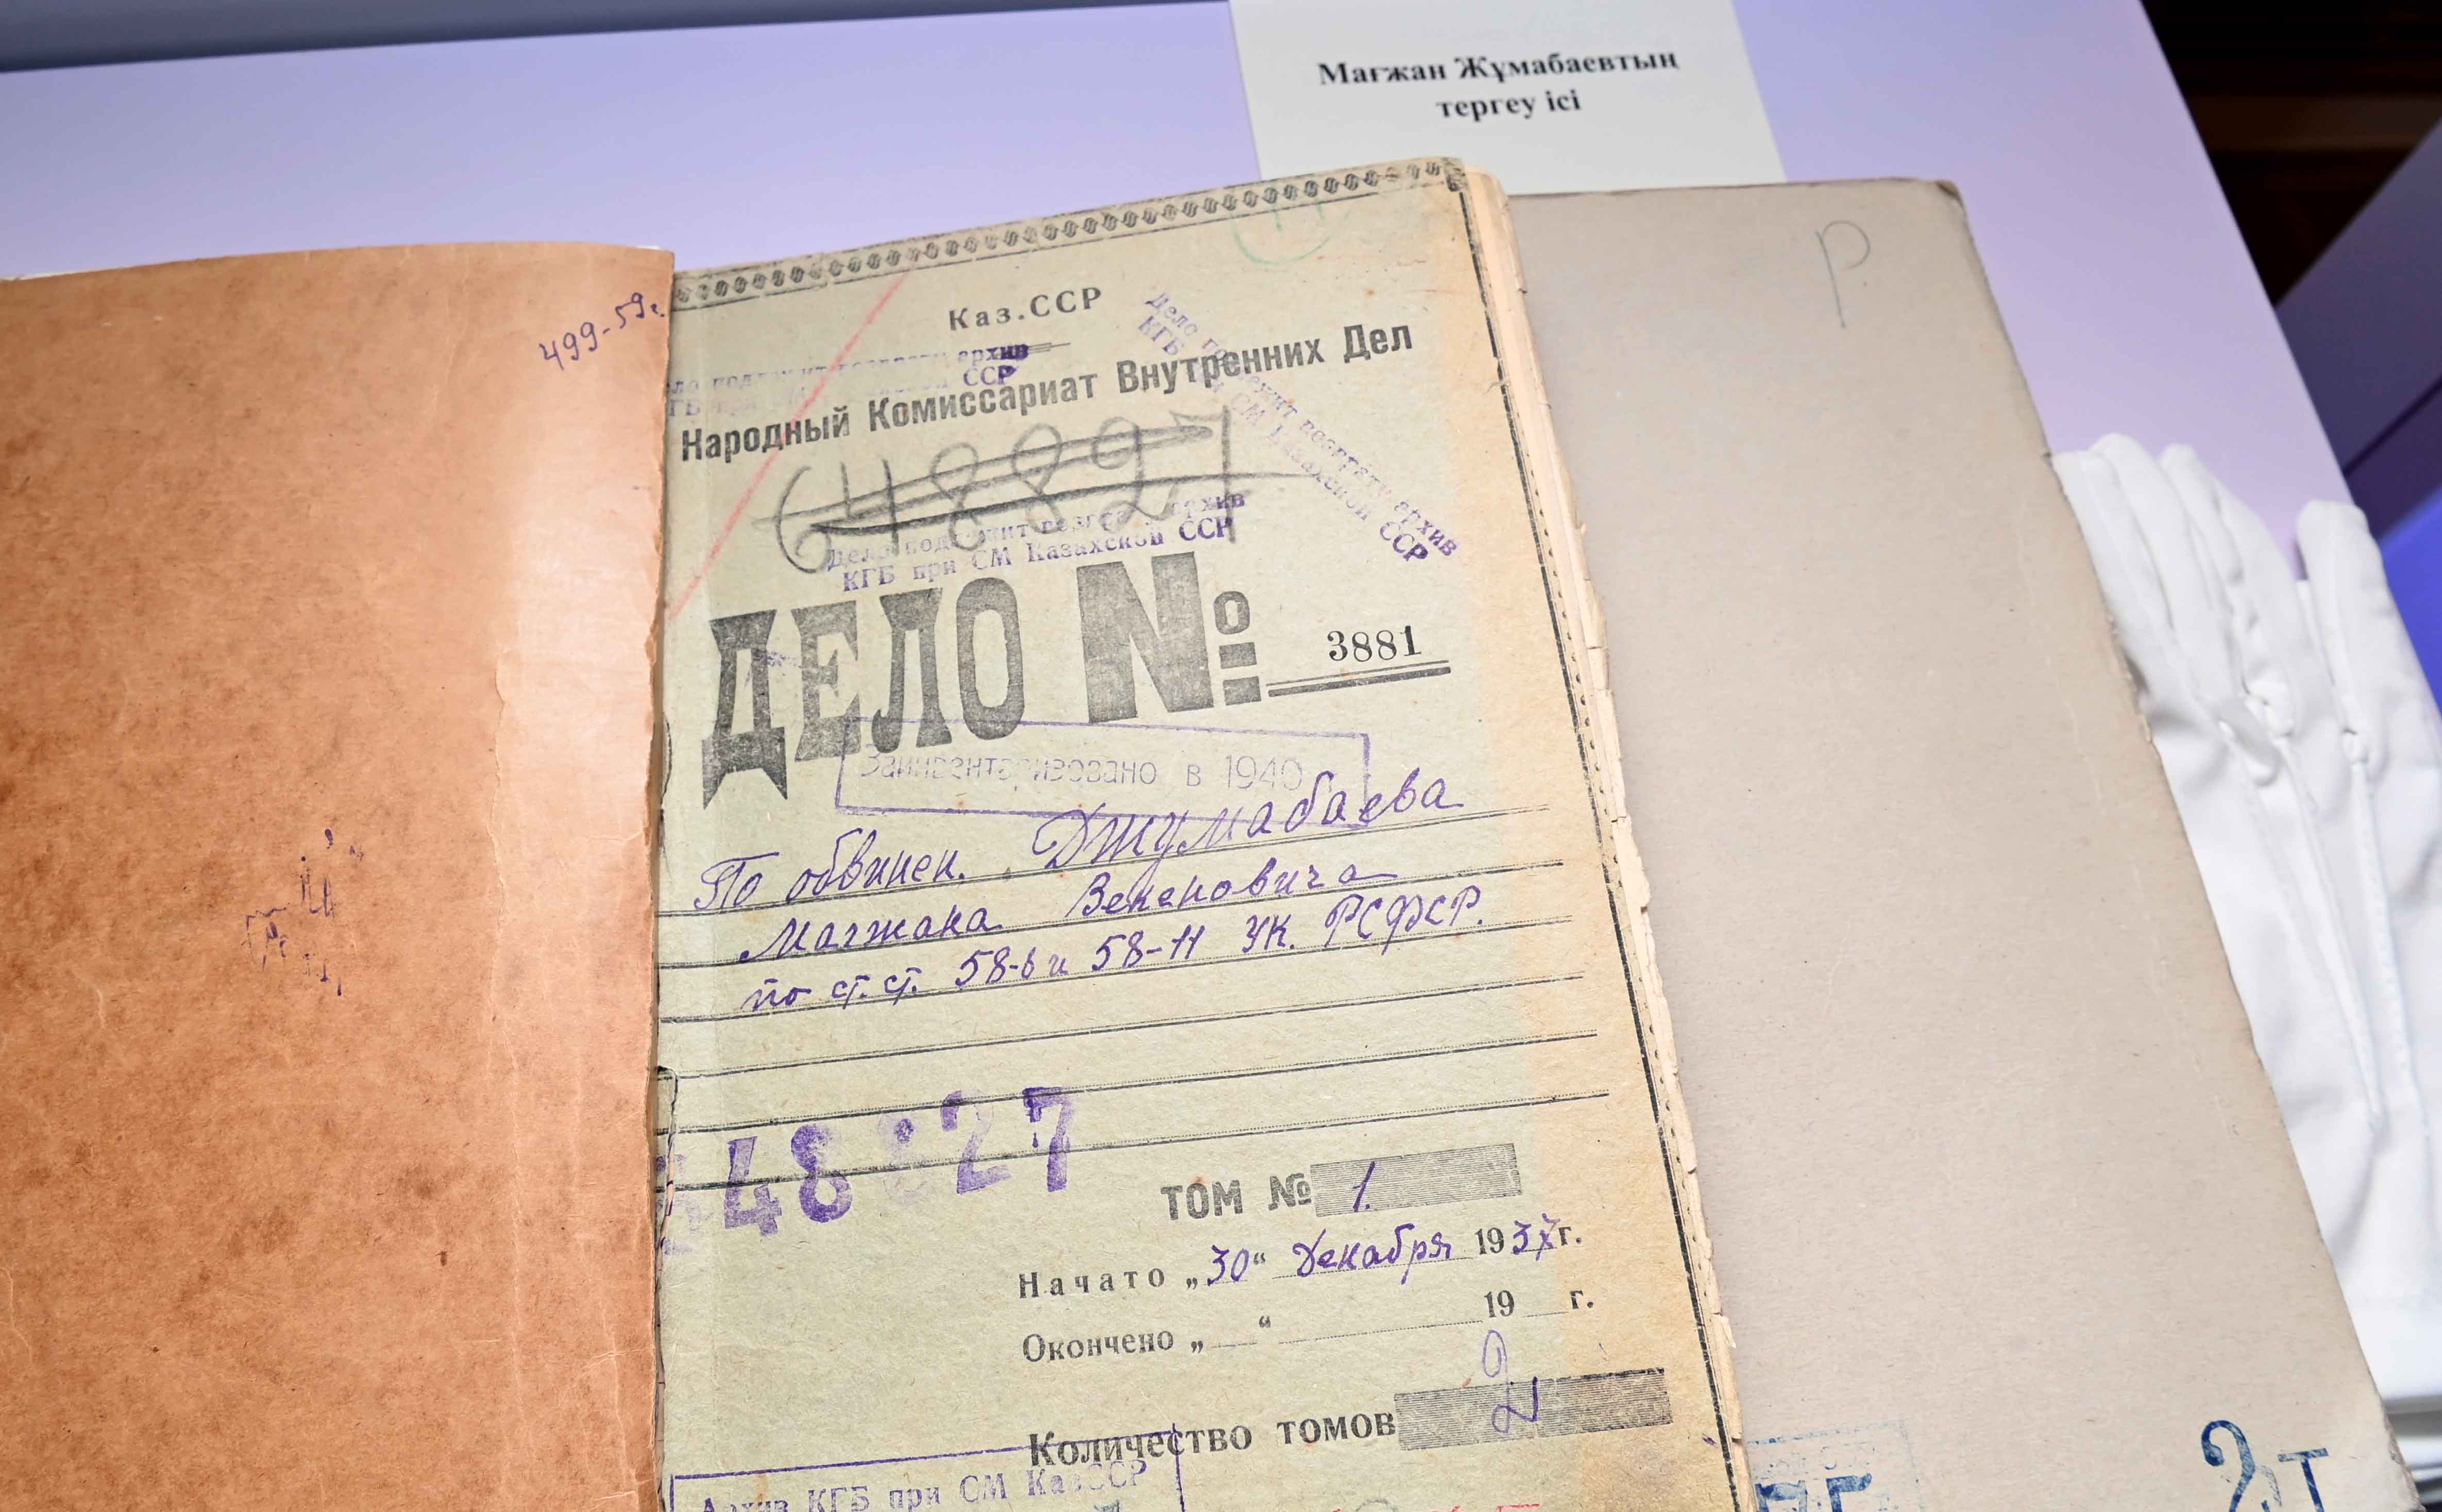 Мағжан Жұмабаевтың
тергеу ісі
Р.
499-59г.
Каз.ССР
архив
ССР
Народный Комиссариат Внутренних Дел
Дело подлежит возврату архив
КГБ при СМ Казахской ССР
648827
Дело подлежит возврату архив
КГБ при СМ Казахской ССР
ДЕЛО № 3881
Заинвентаризовано в 1940
По обвинен. Джумабаева
Магжана Бекеновича
по ст. ст. 58-6 и 58-11 УК. РСФСР.
48827
ТОМ № 1.
Начато „30“ декабря 1937г.
Окончено „ “ 19 г.
Количество томов 2
Архив КГБ при СМ КазССР
2т